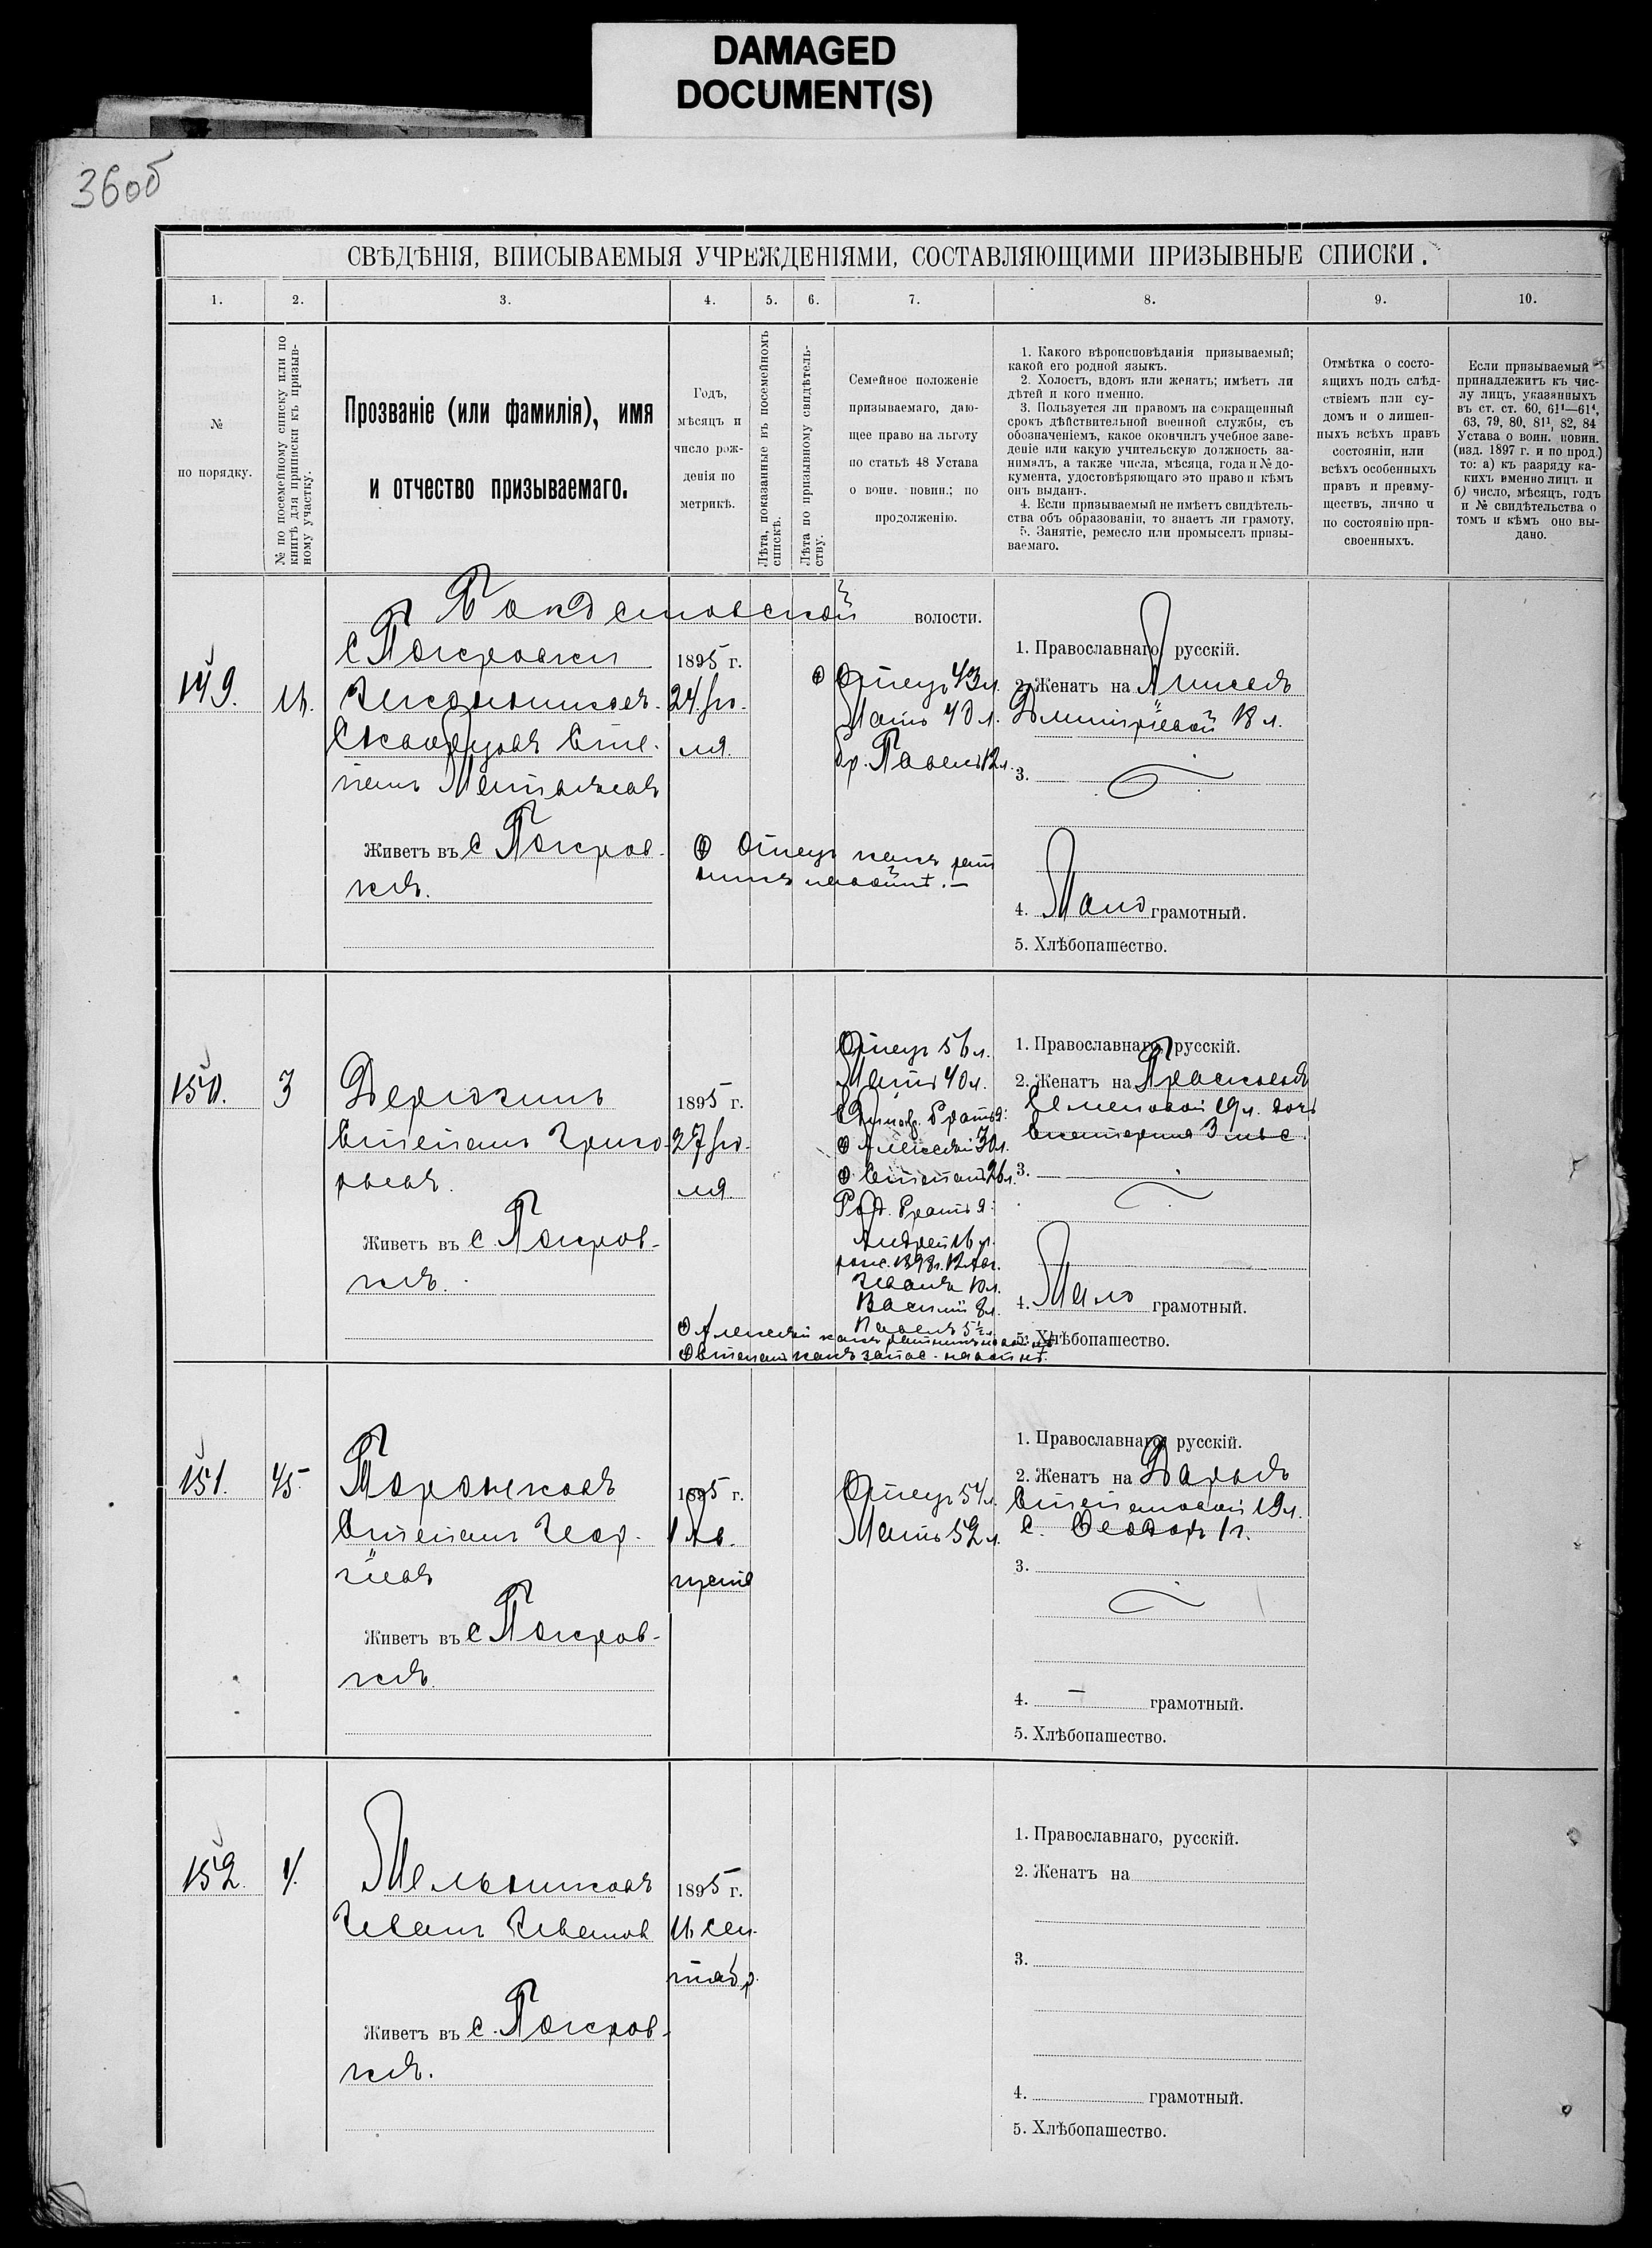 DAMAGED
DOCUMENT(S)
36об
СВѢДѢНІЯ, ВПИСЫВАЕМЫЯ УЧРЕЖДЕНІЯМИ, СОСТАВЛЯЮЩИМИ ПРИЗЫВНЫЕ СПИСКИ.
1. 2. 3. 4. 5. 6. 7. 8. 9. 10.
№
по порядку.
№ по посемейному списку или по
книгѣ для приписки къ призыв-
ному участку.
Прозваніе (или фамилія), имя
и отчество призываемаго.
Годъ,
мѣсяцъ и
число рож-
денія по
метрикѣ.
Лѣта, показанные въ посемейномъ
спискѣ.
Лѣта по призывному свидѣтель-
ству.
Семейное положеніе
призываемаго, даю-
щее право на льготу
по статьѣ 48 Устава
о воин. повин.; по
продолженію.
1. Какого вѣроисповѣданія призываемый;
какой его родной языкъ.
2. Холостъ, вдовъ или женатъ; имѣетъ ли
дѣтей и кого именно.
3. Пользуется ли правомъ на сокращенный
срокъ дѣйствительной военной службы, съ
обозначеніемъ, какое окончилъ учебное заве-
деніе или какую учительскую должность за-
нималъ, а также числа, мѣсяца, года и № до-
кумента, удостовѣряющаго это право и кѣмъ
онъ выданъ.
4. Если призываемый не имѣетъ свидѣтель-
ства объ образованіи, то знаетъ ли грамоту.
5. Занятіе, ремесло или промыселъ призы-
ваемаго.
Отмѣтка о состо-
ящихъ подъ слѣд-
ствіемъ или су-
домъ и о лишен-
ныхъ всѣхъ правъ
состоянія, или
всѣхъ особенныхъ
правъ и преиму-
ществъ, лично и
по состоянію при-
своенныхъ.
Если призываемый
принадлежитъ къ чис-
лу лицъ, указанныхъ
въ ст. ст. 60, 61¹—61⁴,
63, 79, 80, 81¹, 82, 84
Устава о воин. повин.
(изд. 1897 г. и по прод.)
то: а) къ разряду ка-
кихъ именно лицъ и
б) число, мѣсяцъ, годъ
и № свидѣтельства о
томъ и кѣмъ оно вы-
дано.
волости.
с Покровки
149. 16.
Сте-
панъ Матвѣевъ
Живетъ въ с Покров-
кѣ.
1895 г.
24 Iю-
ля.
Отецъ 43 л.
Мать 40 л.
бр. Павелъ 12 л.
Отецъ какъ рат
1. Православнаго, русскій.
2. Женатъ на Анисьѣ
Дмитріевой 18 л.
3.
4. Мало грамотный.
5. Хлѣбопашество.
150. 3
Дерюгинъ
Степанъ Григо-
рьевъ.
Живетъ въ с. Покров-
кѣ.
1895 г.
27 Iю-
ля.
Отецъ 56 л.
Мать 40 л.
братья:
Алексѣй 30 л.
Степанъ 26 л.
Род. братья:
Андрей 16 л.
рож. 1898 г. 12 Авг.
Иванъ 10 л.
Василій 8 л.
Павелъ 5½ л.
Алексѣй какъ ратникъ
Степанъ какъ запас.
1. Православнаго, русскій.
2. Женатъ на Прасковьѣ
Семеновой 19 л. дочь
Екатерина 3 мѣс.
3.
4. Мало грамотный.
5. Хлѣбопашество.
151. 45.
Степанъ Геор-
гіевъ
Живетъ въ с Покров-
кѣ.
1895 г.
1 Ав-
густа
Отецъ 54 л.
Мать 52 л.
1. Православнаго, русскій.
2. Женатъ на Дарьѣ
Степановой 19 л.
с. Ѳеодоръ 1 г.
3.
4. — грамотный.
5. Хлѣбопашество.
152. 4.
Мельниковъ
Иванъ Ивановъ
Живетъ въ с. Покров-
кѣ.
1895 г.
16 Сен-
тябр.
1. Православнаго, русскій.
2. Женатъ на
3.
4. грамотный.
5. Хлѣбопашество.